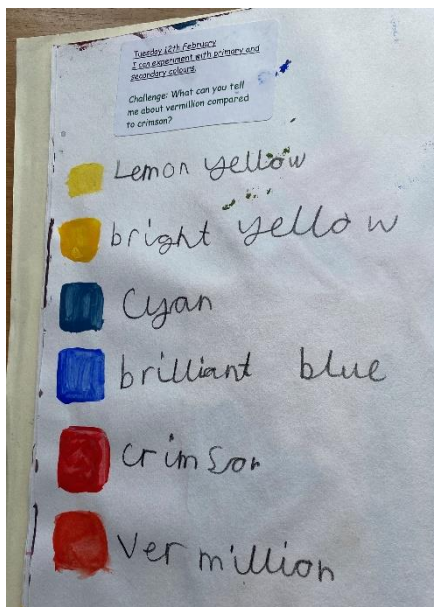 Tuesday 12th February
I can experiment with primary and
secondary colours.
Challenge: What can you tell
me about vermillion compared
to crimson?
Lemon yellow
bright yellow
Cyan
brilliant blue
crimson
Vermillion